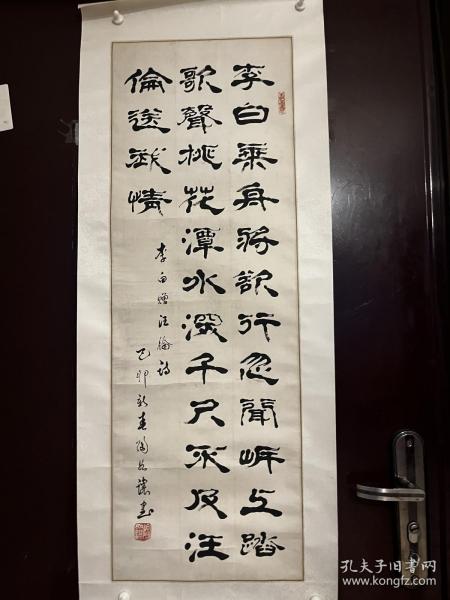 李白乘舟将欲行忽聞岸上踏
歌聲桃花潭水深千尺不及汪
倫送我情
李白赠汪倫詩
己卯新春陶
書
孔夫子旧书网
www.kongfz.com